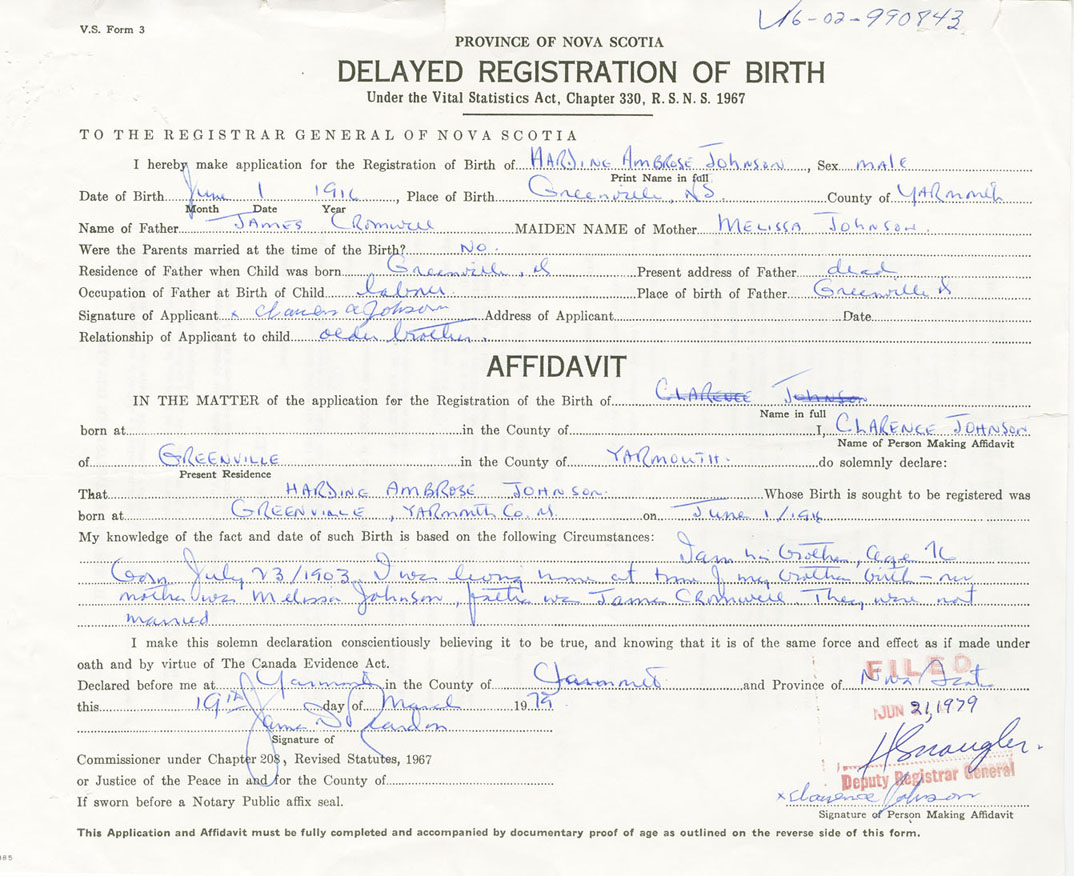 V.S. Form 3
16-02-990843
PROVINCE OF NOVA SCOTIA
DELAYED REGISTRATION OF BIRTH
Under the Vital Statistics Act, Chapter 330, R. S. N. S. 1967
TO THE REGISTRAR GENERAL OF NOVA SCOTIA
I hereby make application for the Registration of Birth of HARDING AMBROSE JOHNSON, Sex male
Print Name in full
Date of Birth June 1 1916, Place of Birth Greenville, NS. County of YARMOUTH
Month Date Year
Name of Father JAMES CROMWELL MAIDEN NAME of Mother MELISSA JOHNSON.
Were the Parents married at the time of the Birth? NO.
Residence of Father when Child was born Greenville, NS Present address of Father dead
Occupation of Father at Birth of Child labourer Place of birth of Father Greenville NS
Signature of Applicant x Johnson Address of Applicant Date
Relationship of Applicant to child older brother.
AFFIDAVIT
IN THE MATTER of the application for the Registration of the Birth of CLARENCE JOHNSON
Name in full
born at in the County of I, CLARENCE JOHNSON
Name of Person Making Affidavit
of GREENVILLE in the County of YARMOUTH. do solemnly declare:
Present Residence
That HARDING AMBROSE JOHNSON. Whose Birth is sought to be registered was
born at GREENVILLE, YARMOUTH Co. on June 1/1916
My knowledge of the fact and date of such Birth is based on the following Circumstances: I am his brother, age 76
born July 23/1903. I was living home at time of my brother birth – my
mother was Melissa Johnson, father was James CROMWELL They were not
married
I make this solemn declaration conscientiously believing it to be true, and knowing that it is of the same force and effect as if made under
oath and by virtue of The Canada Evidence Act.
Declared before me at Yarmouth in the County of Yarmouth and Province of Nova Scotia
FILED
this 19th day of March 1979
JUN 21, 1979
Signature of
Commissioner under Chapter 208, Revised Statutes, 1967
or Justice of the Peace in and for the County of
Deputy Registrar General
If sworn before a Notary Public affix seal.
x Clarence Johnson
Signature of Person Making Affidavit
This Application and Affidavit must be fully completed and accompanied by documentary proof of age as outlined on the reverse side of this form.